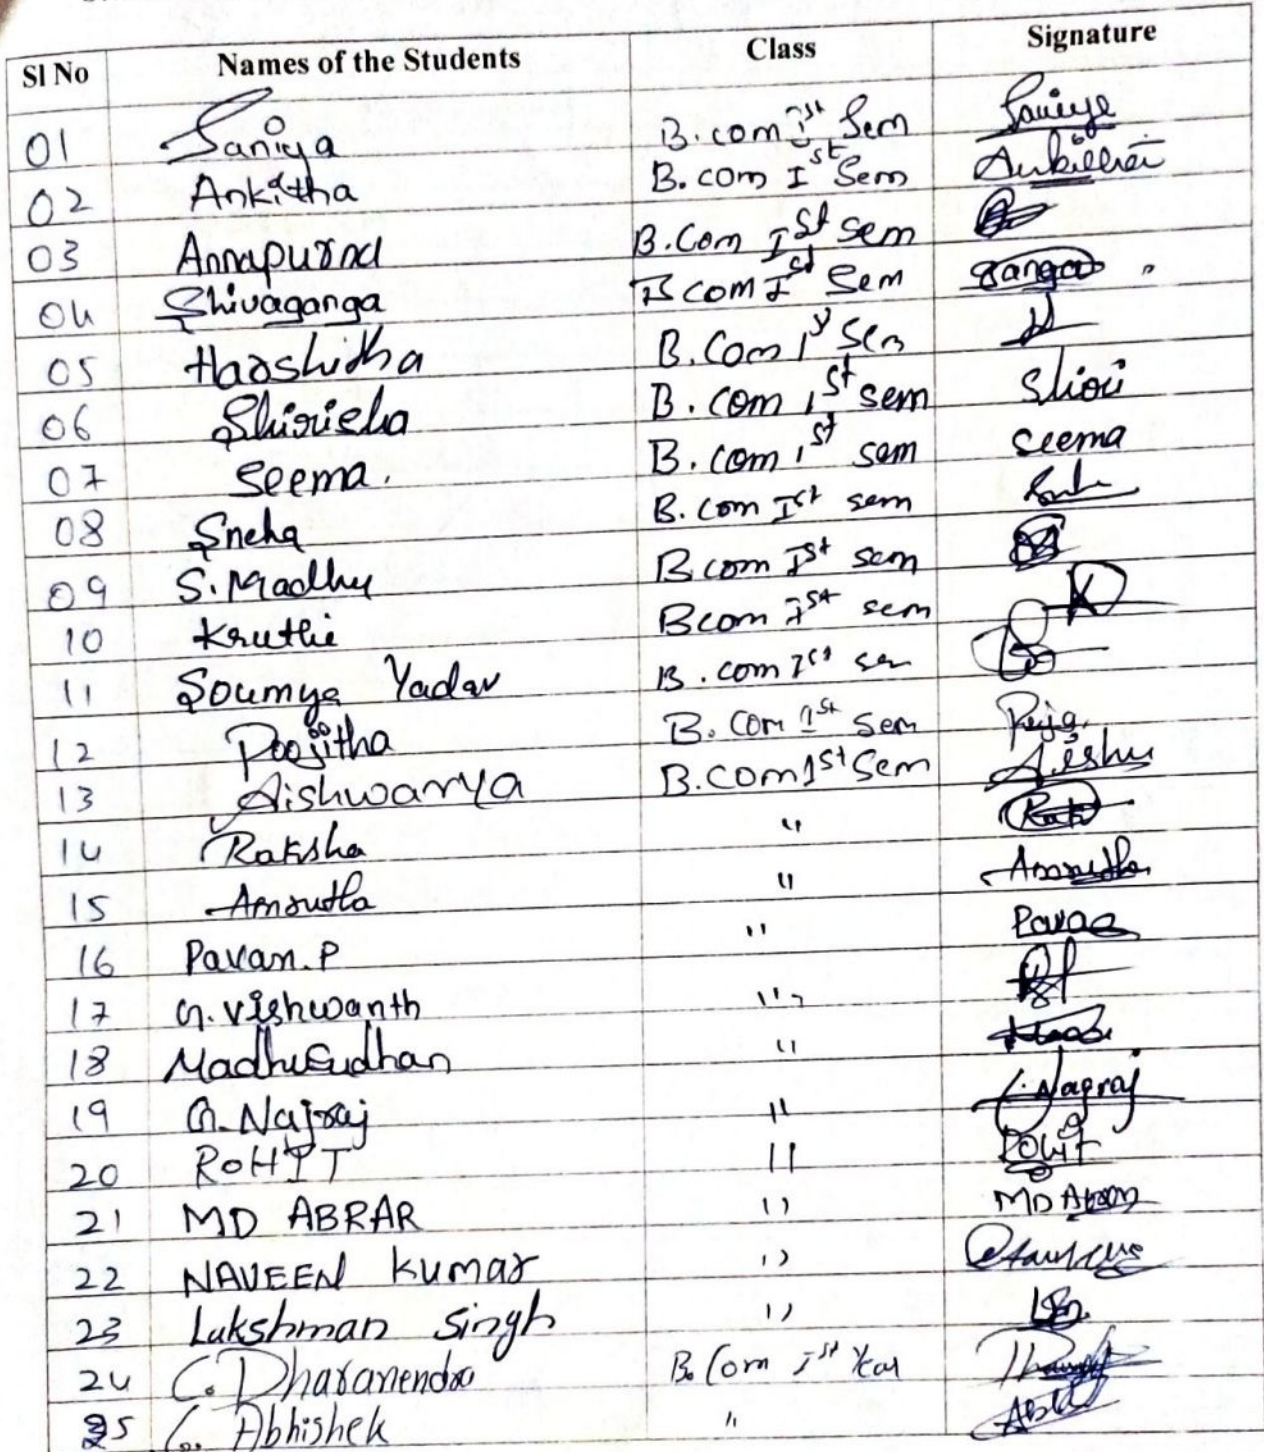 Sl No Names of the Students Class Signature
01 Saniya B.com Ist Sem Saniya
02 Ankitha B.com Ist Sem Ankitha
03 Annapurna B.Com Ist Sem
04 Shivaganga B com Ist Sem Ganga
05 Harshitha B.Com 1st Sem
06 Shirisha B.com 1st sem Shiri
07 Seema. B.com 1st sem seema
08 Sneha B.com Ist sem
09 S.Madhu B com Ist sem
10 Kruthi B com Ist sem
11 Soumya Yadav B.com Ist sem
12 Poojitha B.Com 1st Sem Puja
13 Aishwarya B.com 1st Sem Aishu
14 Raksha "
15 Amrutha " Amrutha
16 Pavan.P " Pavan
17 G.Vishwanth "
18 Madhusudhan "
19 G.Najraj " Nagraj
20 ROHIT " Rohit
21 MD ABRAR " MD Abrar
22 NAVEEN Kumar "
23 Lakshman Singh "
24 C.Dharanendra B.Com Ist Year
25 C.Abhishek " Abhi